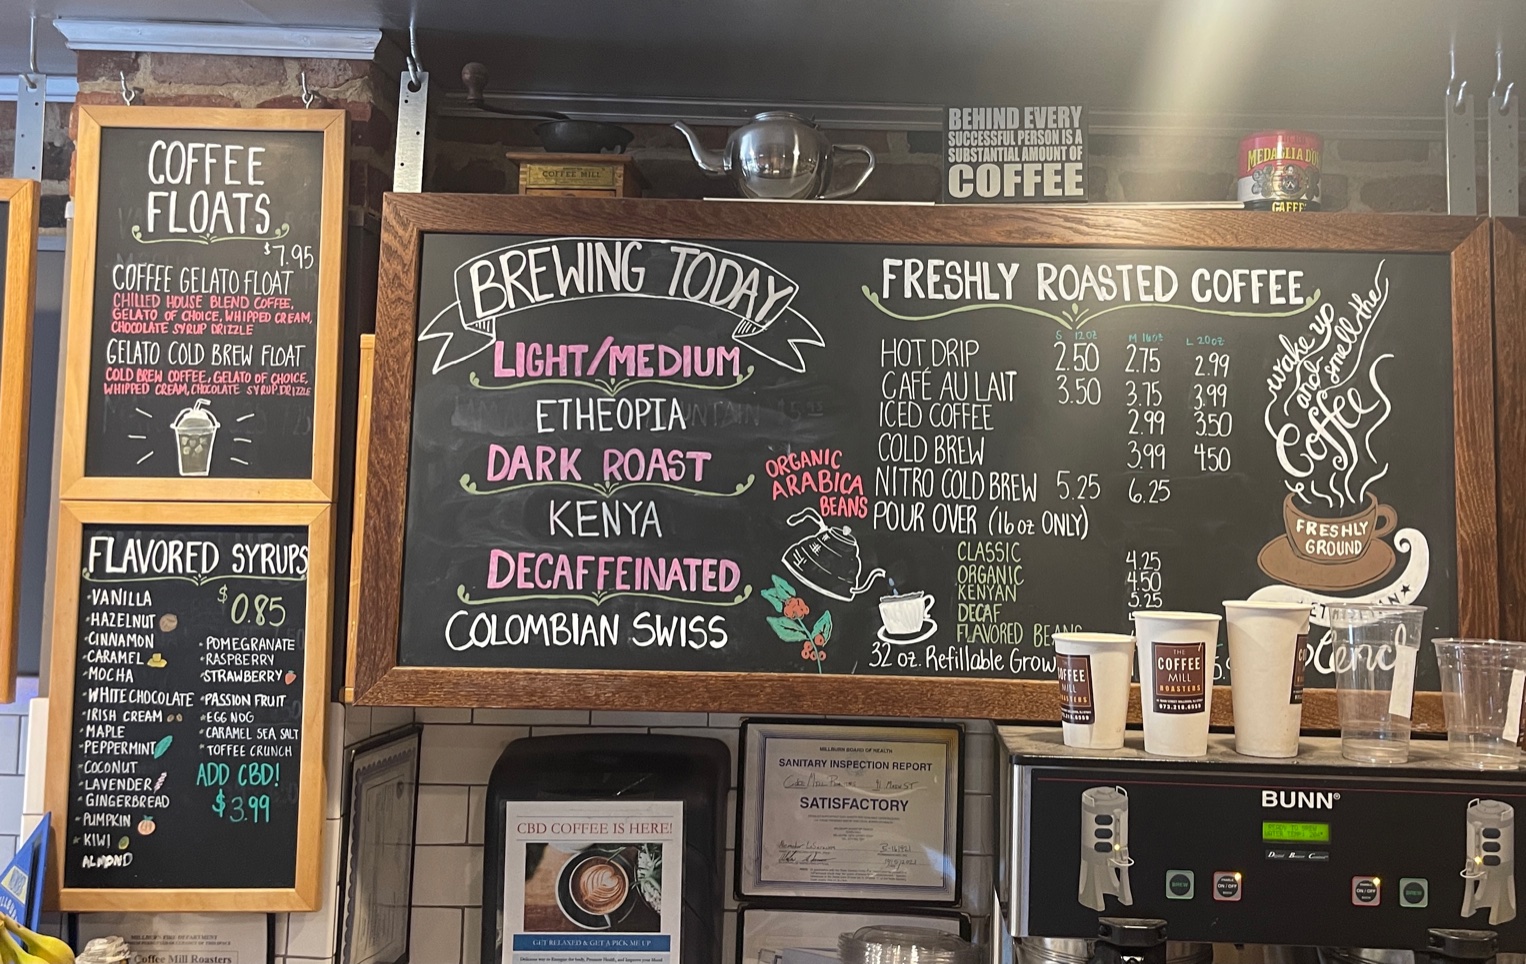 COFFEE
FLOATS
$7.95
COFFEE GELATO FLOAT
CHILLED HOUSE BLEND COFFEE,
GELATO OF CHOICE, WHIPPED CREAM,
CHOCOLATE SYRUP DRIZZLE
GELATO COLD BREW FLOAT
COLD BREW COFFEE, GELATO OF CHOICE,
WHIPPED CREAM, CHOCOLATE SYRUP DRIZZLE
FLAVORED SYRUPS
$0.85
VANILLA
HAZELNUT
CINNAMON
CARAMEL
MOCHA
WHITE CHOCOLATE
IRISH CREAM
MAPLE
PEPPERMINT
COCONUT
LAVENDER
GINGERBREAD
PUMPKIN
KIWI
ALMOND
POMEGRANATE
RASPBERRY
STRAWBERRY
PASSION FRUIT
EGG NOG
CARAMEL SEA SALT
TOFFEE CRUNCH
ADD CBD!
$3.99
COFFEE MILL
BEHIND EVERY
SUCCESSFUL PERSON IS A
SUBSTANTIAL AMOUNT OF
COFFEE
MEDAGLIA D'O
CAFFE
BREWING TODAY
LIGHT/MEDIUM
ETHEOPIA
DARK ROAST
KENYA
DECAFFEINATED
COLOMBIAN SWISS
ORGANIC
ARABICA
BEANS
FRESHLY ROASTED COFFEE
S 12oz M 16oz L 20oz
HOT DRIP 2.50 2.75 2.99
CAFÉ AU LAIT 3.50 3.75 3.99
ICED COFFEE 2.99 3.50
COLD BREW 3.99 4.50
NITRO COLD BREW 5.25 6.25
POUR OVER (16oz ONLY)
CLASSIC 4.25
ORGANIC 4.50
KENYAN 5.25
DECAF
FLAVORED BEANS
32 oz. Refillable Grow
wake up
and smell the
Coffee
FRESHLY
GROUND
blend
THE
COFFEE
MILL
ROASTERS
973.218.6550
BUNN®
BREW
ON/OFF
ON/OFF
BREW
MILLBURN BOARD OF HEALTH
SANITARY INSPECTION REPORT
SATISFACTORY
CBD COFFEE IS HERE!
GET RELAXED & GET A PICK ME UP
MILLBURN FIRE DEPARTMENT
Coffee Mill Roasters